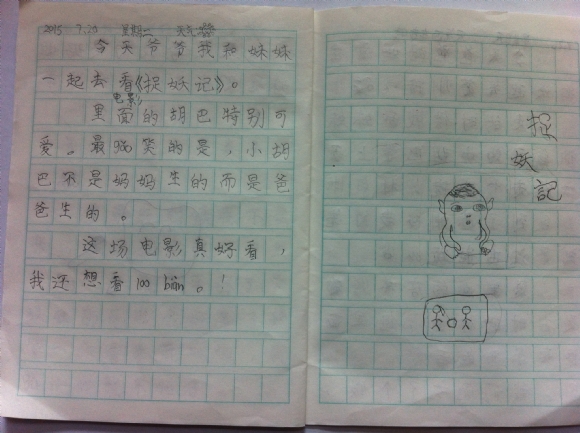 2015 星期二 天气
今天爷爷我和妹妹
一起去看《捉妖记》。
电影
里面的胡巴特别可
爱。最gao笑的是，小胡
巴不是妈妈生的而是爸
爸生的。
这场电影真好看，
我还想看100 biàn。！
捉妖記